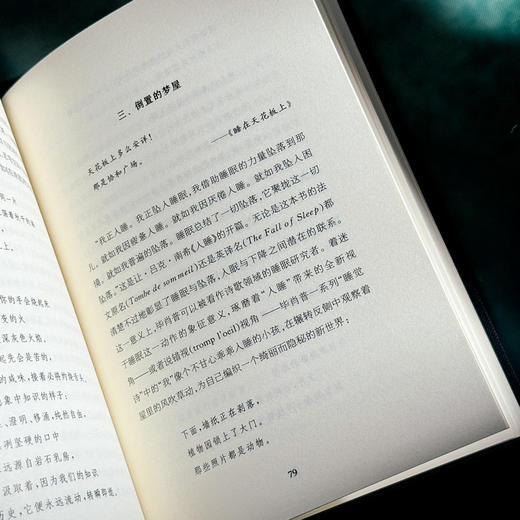 一片
你的手会烧到灰
变的火
深灰色火焰,
起先会是苦的,
的咸味,接着必将灼烧舌头。
想象中知识的样子:
、澄明、移涌,纯然自由,
冽坚硬的口中
远源自岩石乳房,
汲取着,因为我们的知识
历史,它便永远流动,转瞬即逝。
三、倒置的梦屋
天花板上多么安详!
那是协和广场。
——《睡在天花板上》
“我正入睡。我正坠入睡眠,我借助睡眠的力量坠落到那
儿。就如我因疲惫入睡。就如我因厌倦入睡。就如我坠入困
境。就如我普遍的坠落。睡眠总结了一切坠落,它聚拢这一切
坠落。”这是让·吕克·南希《入睡》的开篇。无论是这本书的法
文原名(Tombe de sommeil)还是英译名(The Fall of Sleep)都
清楚不过地彰显了睡眠与坠落、入眠与下降之间潜在的联系。
这一意义上,毕肖普可以被看作诗歌领域的睡眠研究者。着迷
于睡眠这一动作的象征意义,琢磨着“入睡”带来的全新视
角——或者说错视(tromp l'oeil)视角——毕肖普一系列“睡觉
诗”中的“我”像个不甘心乖乖入睡的小孩,在辗转反侧中观察着
屋里的风吹草动,为自己编织一个绮丽而隐秘的新世界:
下面,墙纸正在剥落,
植物园锁上了大门。
那些照片都是动物。
79